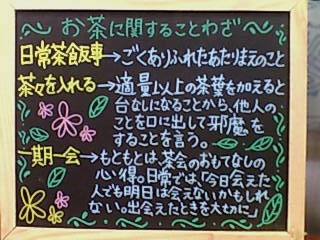 ～お茶に関することわざ～
日常茶飯事→ごくありふれたあたりまえのこと
茶々を入れる→適量以上の茶葉を加えると
台なしになることから、他人の
ことを口に出して邪魔を
することを言う。
一期一会→もともとは、茶会のおもてなしの
心得。日常では「今日会えた
人でも明日は会えないかもしれ
ない。出会えたときを大切に」